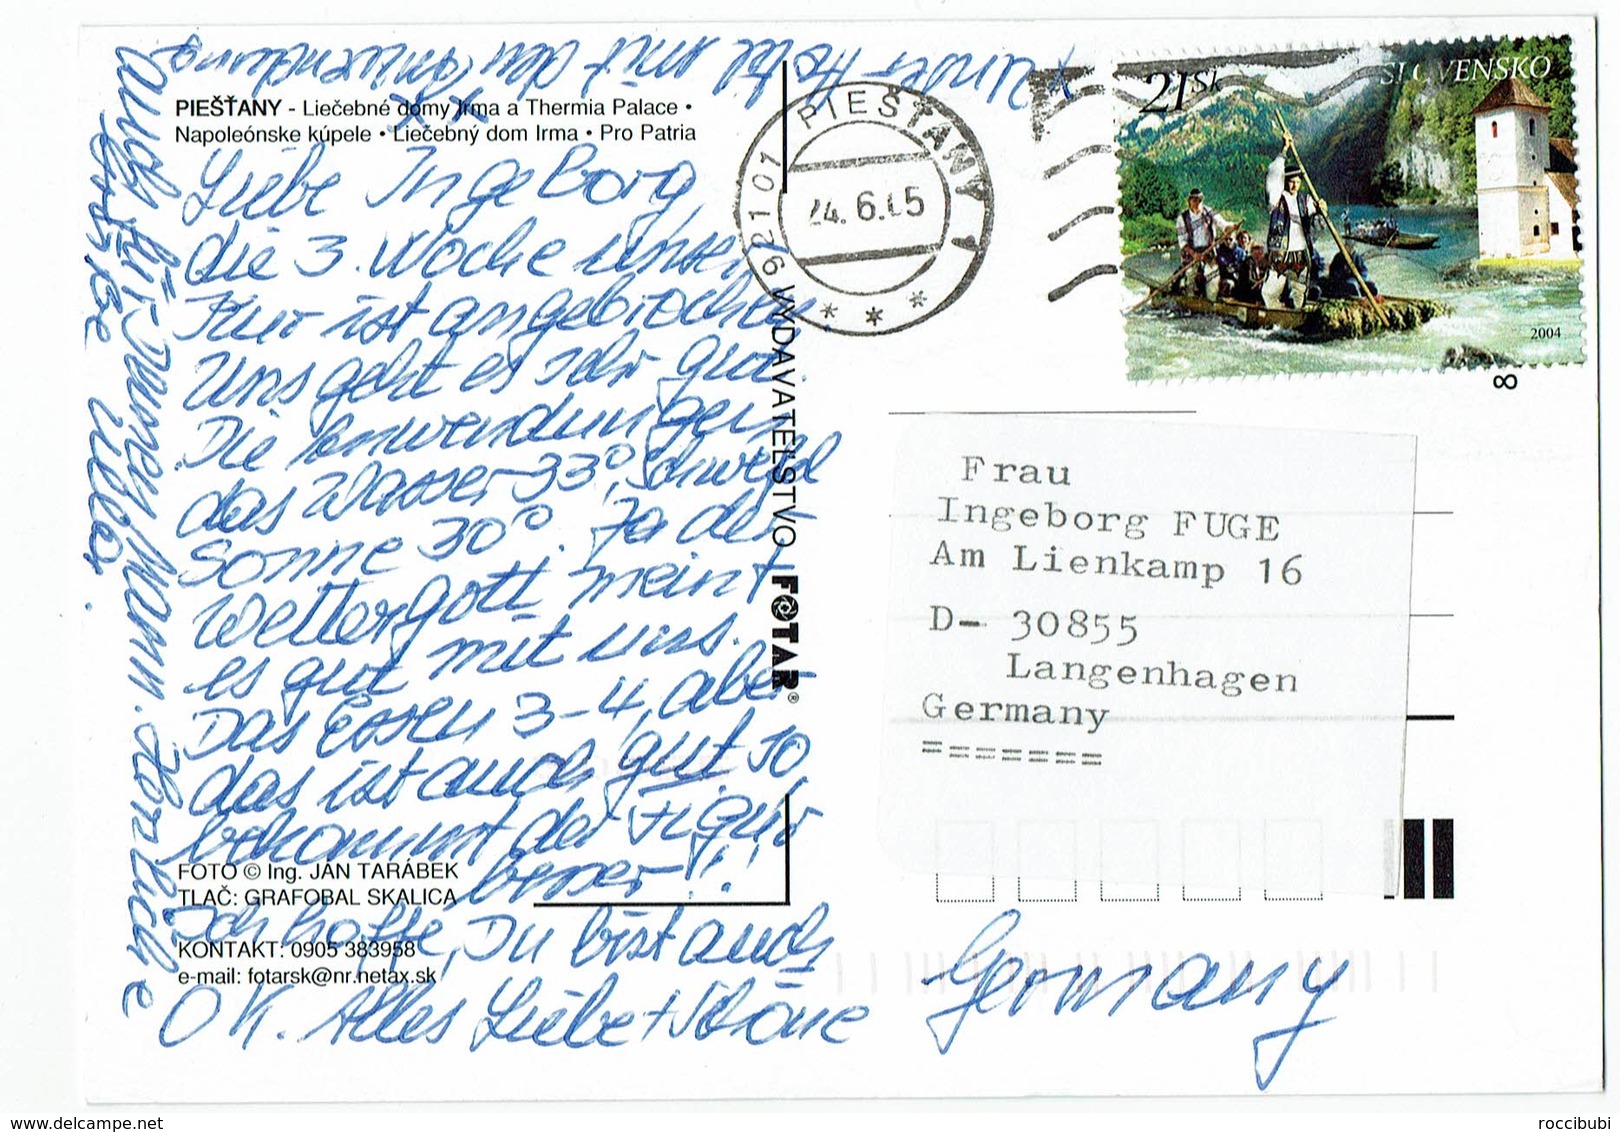 x unser Hotel mit den Anwendungen
PIEŠŤANY - Liečebné domy Irma a Thermia Palace •
Napoleónske kúpele • Liečebný dom Irma • Pro Patria
Liebe Ingeborg,
die 3. Woche unserer
Kur ist angebrochen.
Uns geht es sehr gut.
Die Anwendungen,
das Wasser 33°,
Sonne 30°. Ja der
Wettergott meint
es gut mit uns.
Das Essen 3-4, aber
das ist auch gut so,
bekommt der Figur
besser!!!
Ich hoffe, Du bist auch
OK. Alles Liebe + Schöne
auch für Deinen Mann. Herzliche
Grüße
FOTO © Ing. JÁN TARÁBEK
TLAČ: GRAFOBAL SKALICA
KONTAKT: 0905 383958
e-mail: fotarsk@nr.netax.sk
VYDAVATEĽSTVO FOTAR®
PIEŠŤANY 1
921 01
24.6.05
21 Sk
SLOVENSKO
2004
8
Frau
Ingeborg FUGE
Am Lienkamp 16
D- 30855
Langenhagen
Germany
=======
Germany
roccibubi